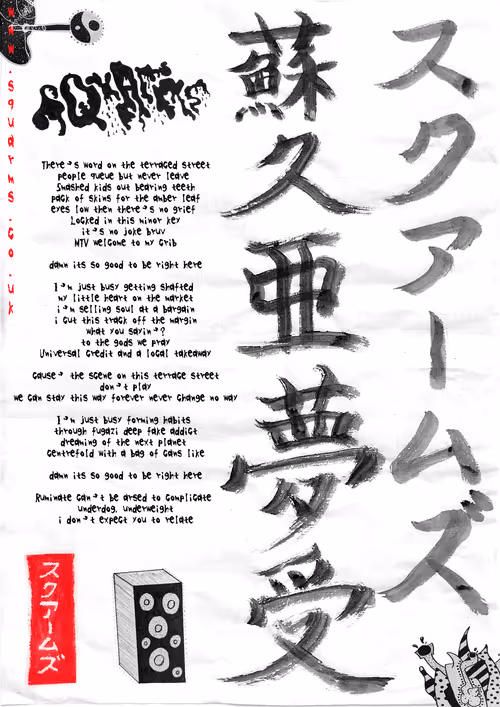 www.squarms.co.uk
SQUARMS
There's word on the terraced street
people queue but never leave
Smashed kids out bearing teeth
pack of skins for the amber leaf
eyes low then there's no grief
Locked in this minor key
it's no joke bruv
MTV welcome to my Crib
damn its so good to be right here
I'm just busy getting shafted
my little heart on the market
i'm selling soul at a bargain
i cut this track off the margin
what you sayin'?
to the gods we pray
Universal Credit and a local takeaway
Cause' the scene on this terrace street
don't play
we can stay this way forever never change no way
I'm just busy forming habits
through fugazi deep fake addict
dreaming of the next planet
Centrefold with a bag of cans like
damn its so good to be right here
Ruminate can't be arsed to complicate
underdog, underweight
i don't expect you to relate
スクアームズ
蘇久亜夢受
スクアームズ